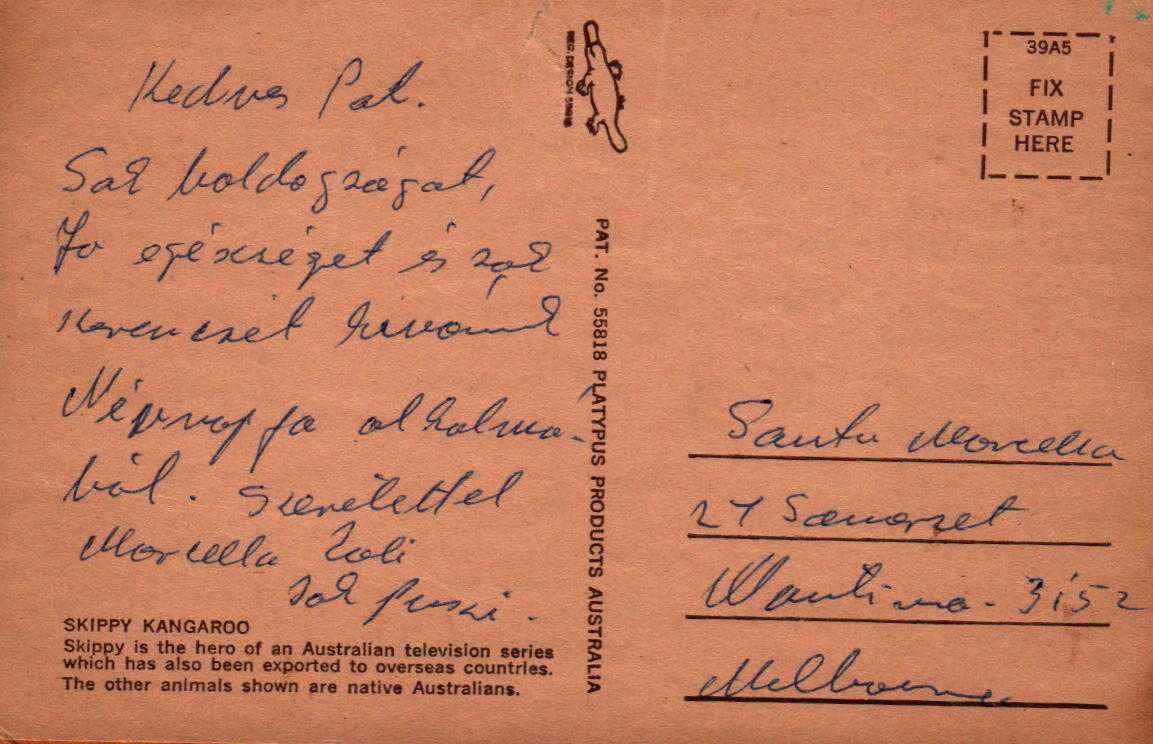 Kedves Pat.
Sok boldogságat,
Jo egéscséget és sok
szerencsét kivánok
Népnapja alkalma-
ból. Szeretettel
Marcella Zoli
sok puszi.
SKIPPY KANGAROO
Skippy is the hero of an Australian television series
which has also been exported to overseas countries.
The other animals shown are native Australians.
REG. DESIGN 55818
PAT. No. 55818 PLATYPUS PRODUCTS AUSTRALIA
39A5
FIX
STAMP
HERE
Marcella
27 Somerset
Wantirna - 3152
Melbourne